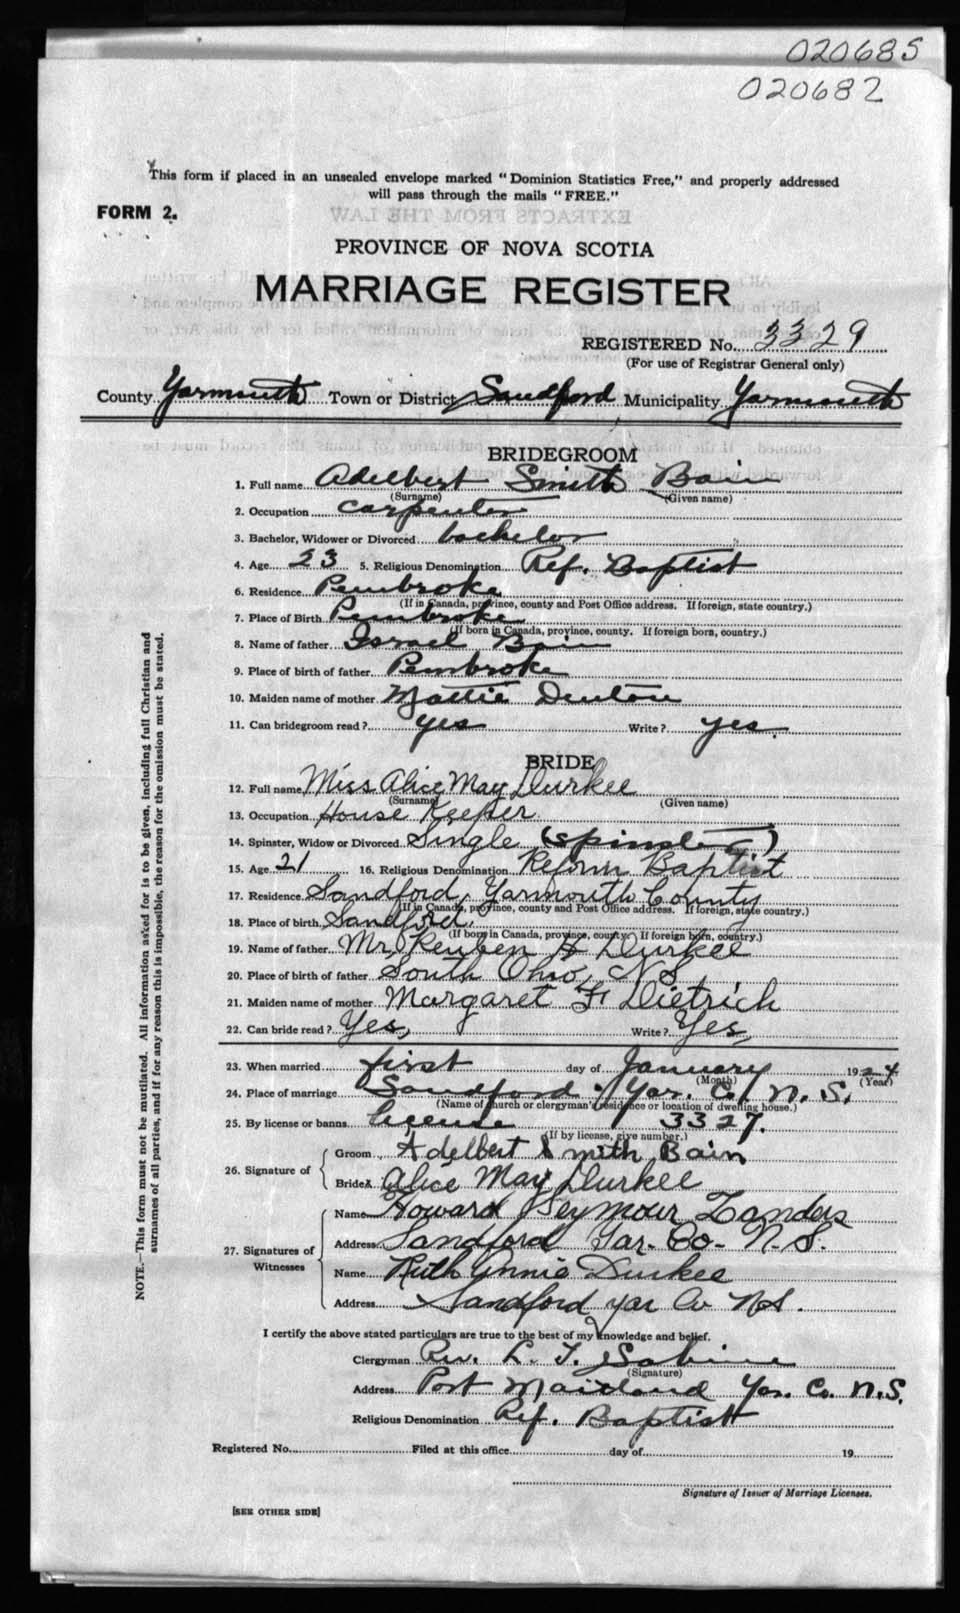 020685
020682
This form if placed in an unsealed envelope marked "Dominion Statistics Free," and properly addressed
will pass through the mails "FREE."
FORM 2.
PROVINCE OF NOVA SCOTIA
MARRIAGE REGISTER
REGISTERED No. 3329
(For use of Registrar General only)
County Yarmouth Town or District Sandford Municipality Yarmouth
BRIDEGROOM
1. Full name Adelbert Smith Bain
(Surname) (Given name)
2. Occupation carpenter
3. Bachelor, Widower or Divorced bachelor
4. Age 23 5. Religious Denomination Ref. Baptist
6. Residence Pembroke
(If in Canada, province, county and Post Office address. If foreign, state country.)
7. Place of Birth Pembroke
(If born in Canada, province, county. If foreign born, country.)
8. Name of father Israel Bain
9. Place of birth of father Pembroke
10. Maiden name of mother Mattie Denton
11. Can bridegroom read? yes Write? yes.
BRIDE
12. Full name Miss Alice May Durkee
(Surname) (Given name)
13. Occupation House Keeper
14. Spinster, Widow or Divorced Single (spinster)
15. Age 21 16. Religious Denomination Reform Baptist
17. Residence Sandford, Yarmouth County
(If in Canada, province, county and Post Office address. If foreign, state country.)
18. Place of birth Sandford.
(If born in Canada, province, county. If foreign born, country.)
19. Name of father Mr. Reuben H Durkee
20. Place of birth of father South Ohio, N.S.
21. Maiden name of mother Margaret F Dietrich
22. Can bride read? Yes, Write? Yes,
23. When married first day of January 1924
(Month) (Year)
24. Place of marriage Sandford, Yar. Co, N.S.
(Name of church or clergyman's residence or location of dwelling house.)
25. By license or banns license 3327.
(If by license, give number.)
26. Signature of Groom Adelbert Smith Bain
Bride Alice May Durkee
27. Signatures of Witnesses
Name Howard Seymour Landers
Address Sandford Yar. Co. N.S.
Name Ruth Annie Durkee
Address Sandford Yar Co N.S.
I certify the above stated particulars are true to the best of my knowledge and belief.
Clergyman Rev. L. T. Sabine
(Signature)
Address Port Maitland Yar. Co. N.S.
Religious Denomination Ref. Baptist
Registered No. Filed at this office day of 19
Signature of Issuer of Marriage Licenses.
[SEE OTHER SIDE]
NOTE.—This form must not be mutilated. All information asked for is to be given, including full Christian and
surnames of all parties, and if for any reason this is impossible, the reason for the omission must be stated.